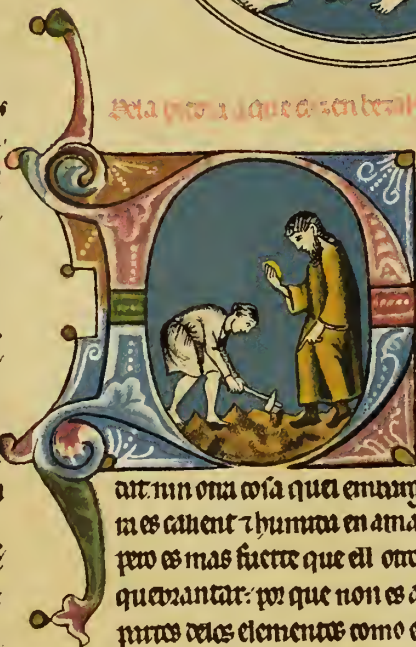 Dela piedra a que dizen bezah
dat. nin otra cosa quel embarg
ra es calient ⁊ humida en ama
pero es mas fuerte que ell otro
quebrantar. por que non es a
partes delos elementos como e